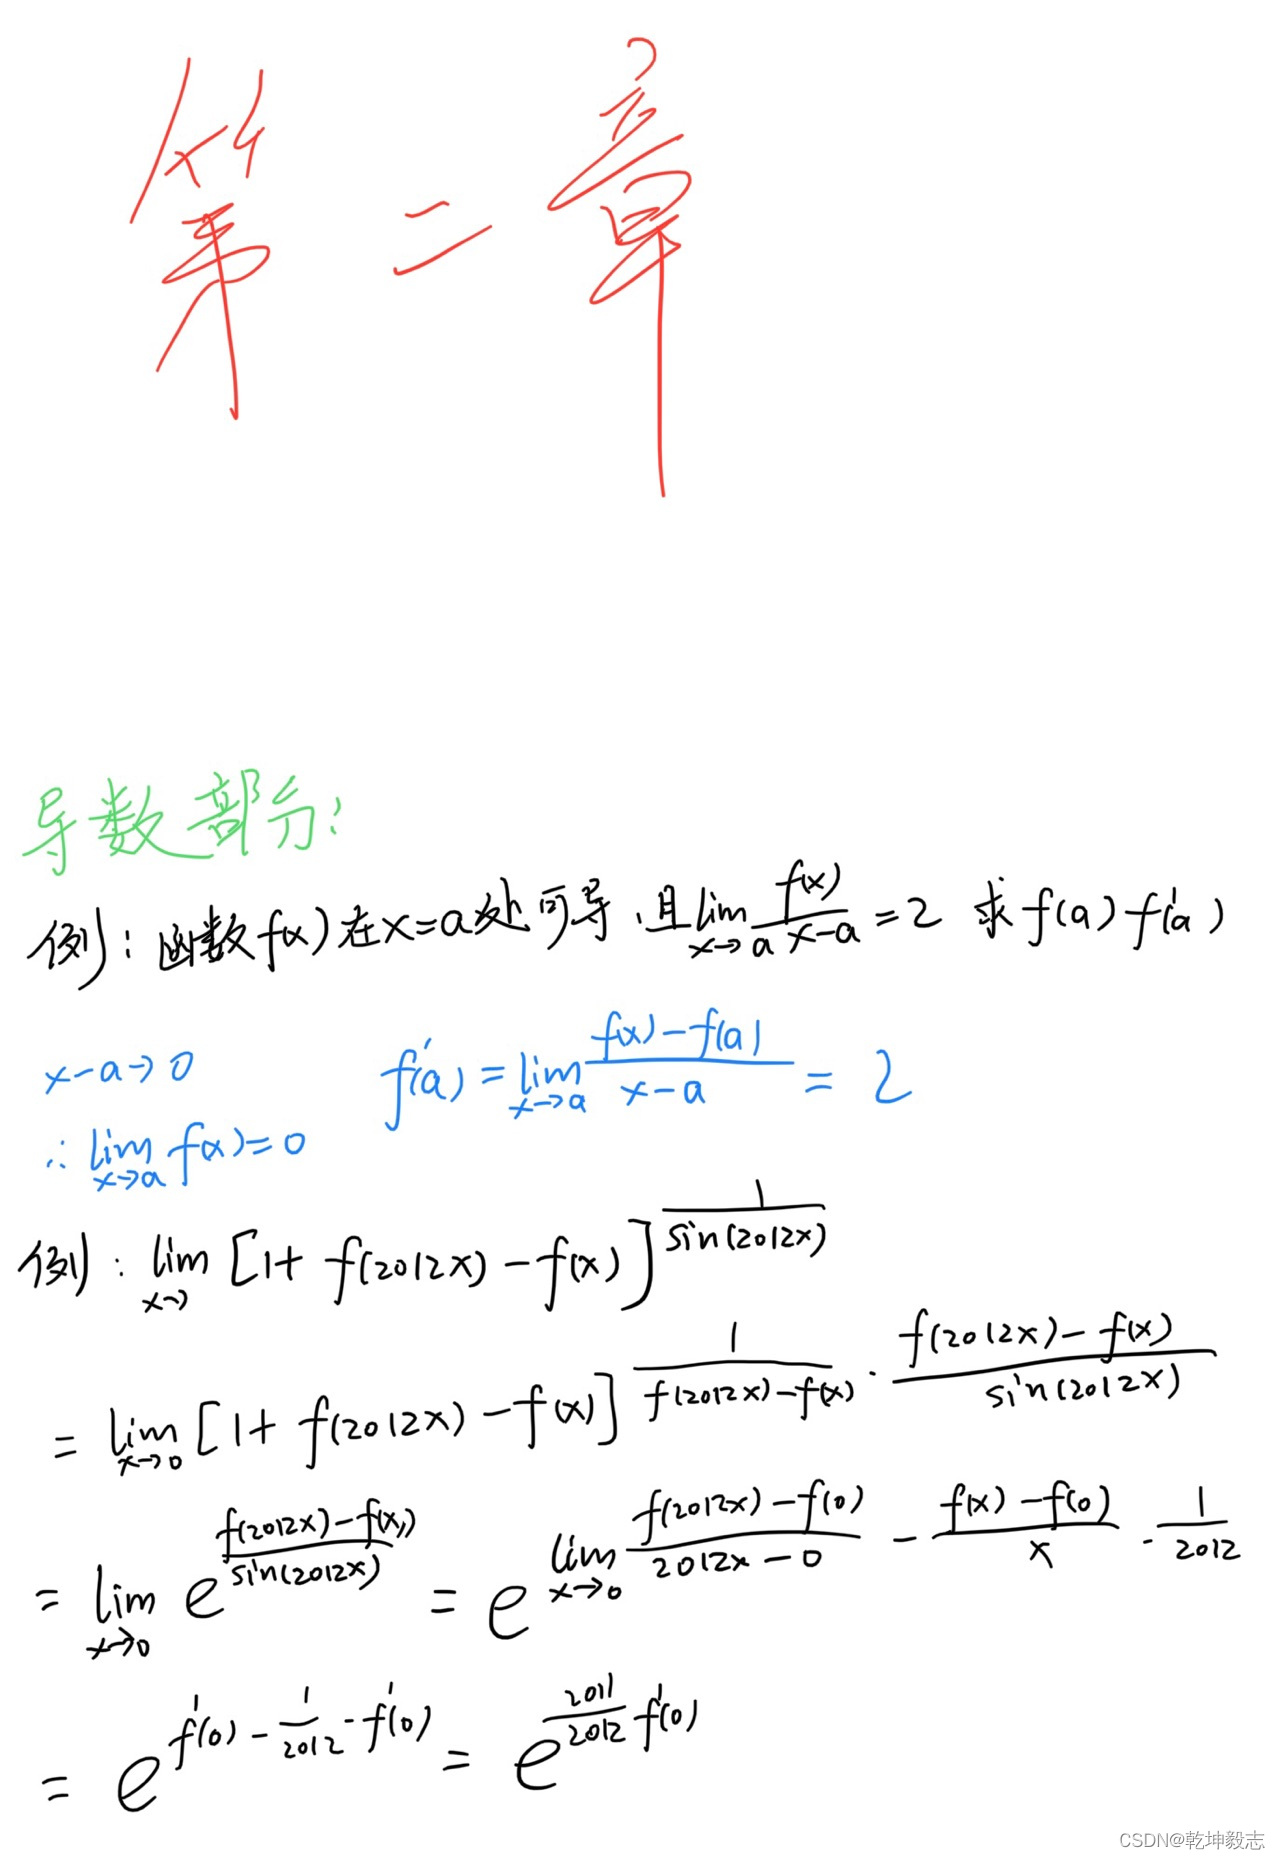 第二章
导数部分:
例: 函数f(x)在x=a处可导,且lim_{x→a} f(x)/(x-a) = 2 求f(a) f'(a)
x-a→0    f'(a) = lim_{x→a} (f(x)-f(a))/(x-a) = 2
∴ lim_{x→a} f(x)=0
例: lim_{x→} [1+ f(2012x) - f(x)]^{1/sin(2012x)}
= lim_{x→0} [1+ f(2012x) - f(x)]^{1/(f(2012x)-f(x)) · (f(2012x)-f(x))/sin(2012x)}
= lim_{x→0} e^{(f(2012x)-f(x))/sin(2012x)} = e^{lim_{x→0} (f(2012x)-f(0))/(2012x-0) - (f(x)-f(0))/x · 1/2012}
= e^{f'(0) - 1/2012 · f'(0)} = e^{2011/2012 f'(0)}
CSDN@乾坤毅志